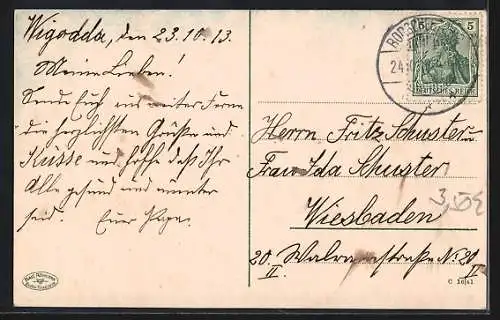 Wigodda, den 23.10.13.
Meine Lieben!
Sende Euch aus weiter Ferne
die herzlichsten Grüße und
Küsse und hoffe daß Ihr
Alle gesund und munter
seid. Euer Papa.
5 5
DEUTSCHES REICH
24.
Herrn Fritz Schuster u.
Frau Ida Schuster
Wiesbaden
20. Walramstraße No 20
II. II
3,50€
C 1641